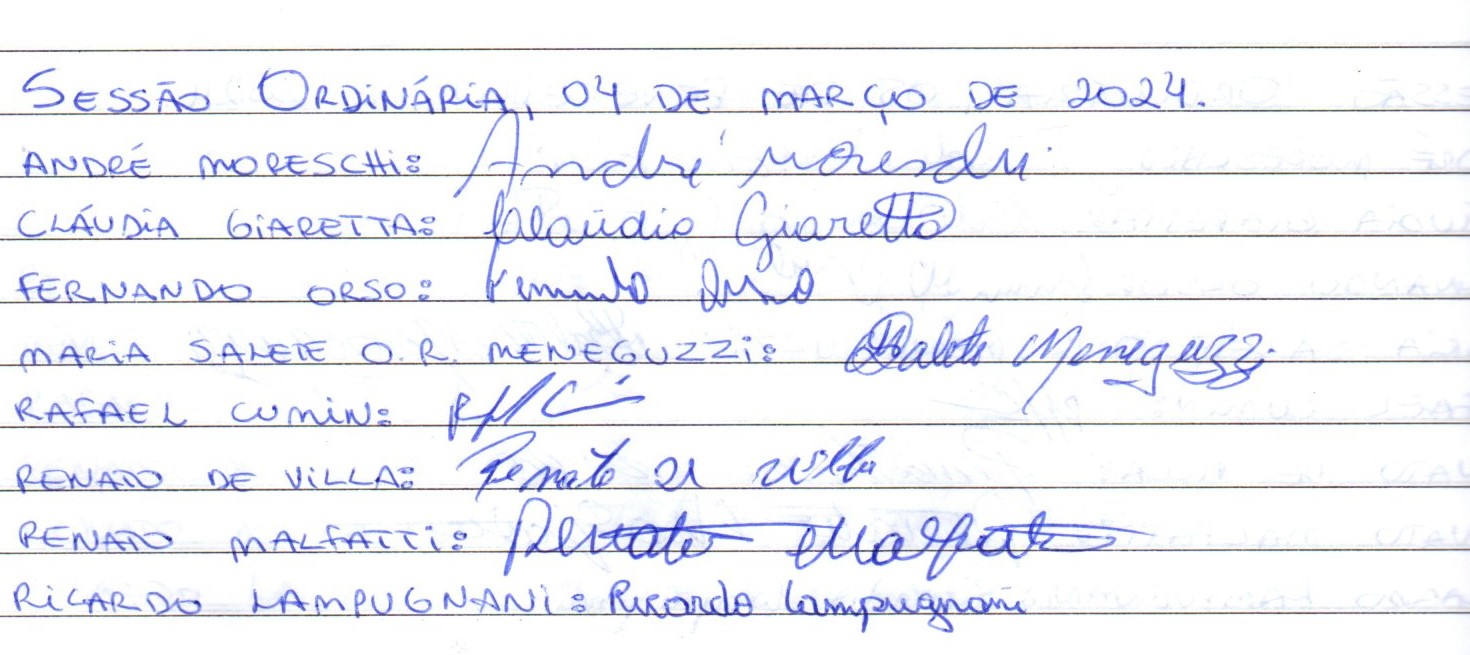 SESSÃO ORDINÁRIA, 04 DE MARÇO DE 2024.
ANDRÉ MORESCHI: André Moreschi
CLÁUDIA GIARETTA: Claúdia Giaretta
FERNANDO ORSO: Fernando Orso
MARIA SALETE O.R. MENEGUZZI: Salete Meneguzzi
RAFAEL CUMIN:
RENATO DE VILLA: Renato de Villa
RENATO MALFATTI: Renato Malfatti
RICARDO LAMPUGNANI: Ricardo Lampugnani